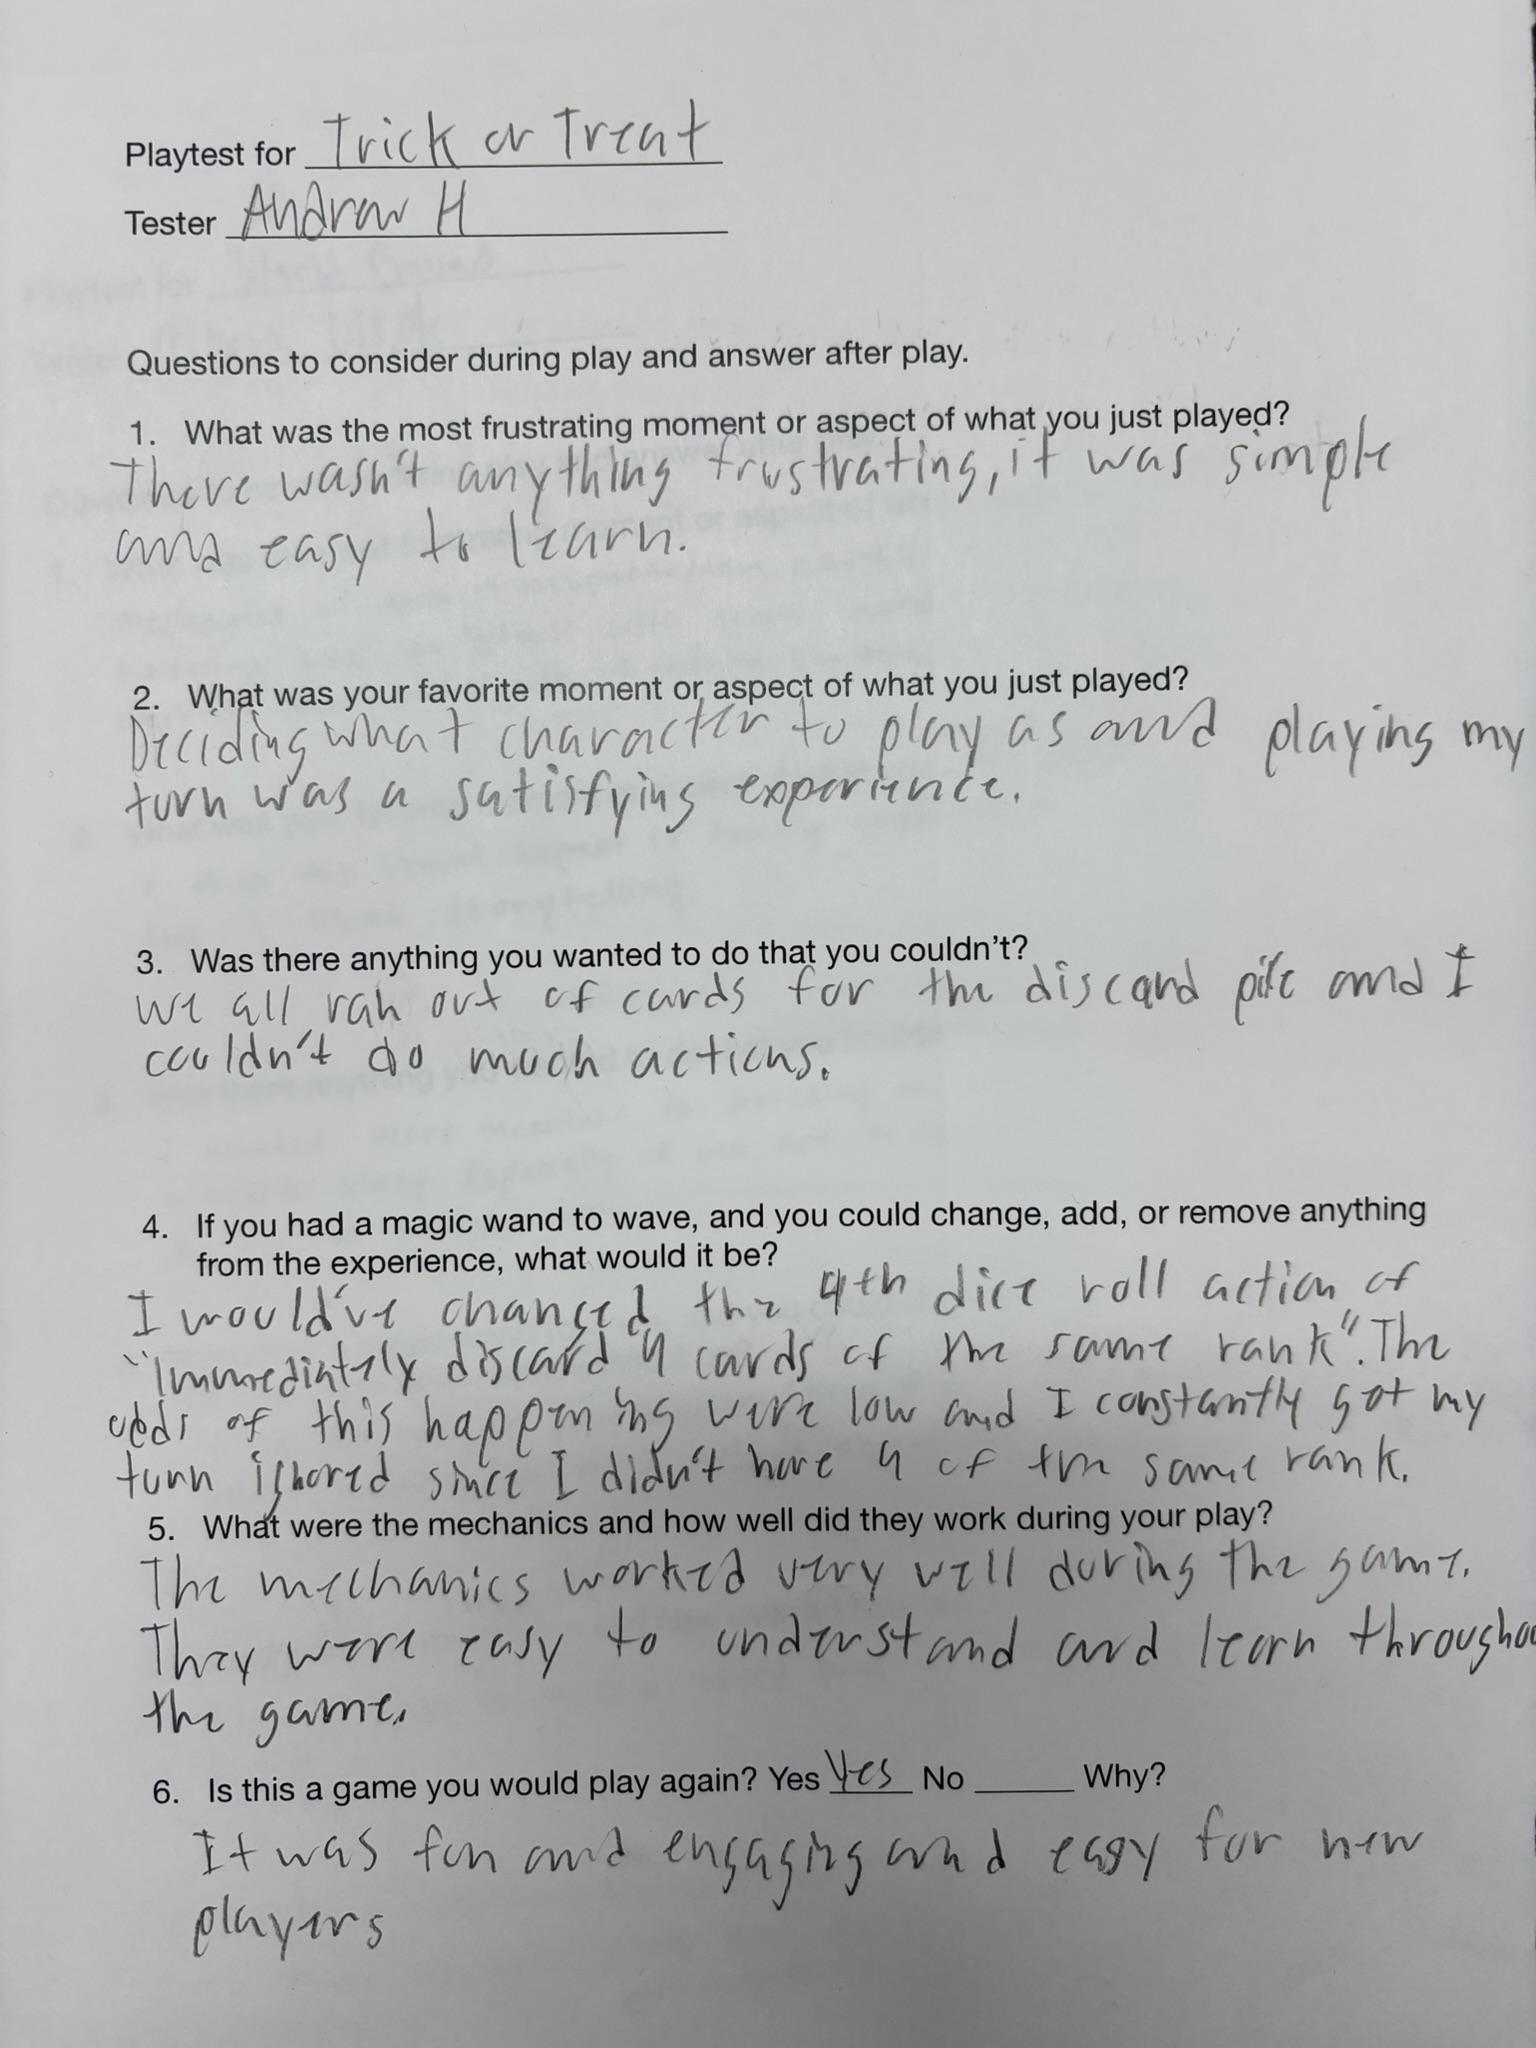 Playtest for Trick or Treat
Tester Andrew H
Questions to consider during play and answer after play.
1. What was the most frustrating moment or aspect of what you just played?
There wasn't anything frustrating, it was simple
and easy to learn.
2. What was your favorite moment or aspect of what you just played?
Deciding what character to play as and playing my
turn was a satisfying experience.
3. Was there anything you wanted to do that you couldn't?
We all ran out of cards for the discard pile and I
couldn't do much actions.
4. If you had a magic wand to wave, and you could change, add, or remove anything
from the experience, what would it be?
I would've changed the 4th dice roll action of
"Immediately discard 4 cards of the same rank". The
odds of this happening were low and I constantly got my
turn ignored since I didn't have 4 of the same rank.
5. What were the mechanics and how well did they work during your play?
The mechanics worked very well during the game.
They were easy to understand and learn througho
the game.
6. Is this a game you would play again? Yes Yes No ____ Why?
It was fun and engaging and easy for new
players